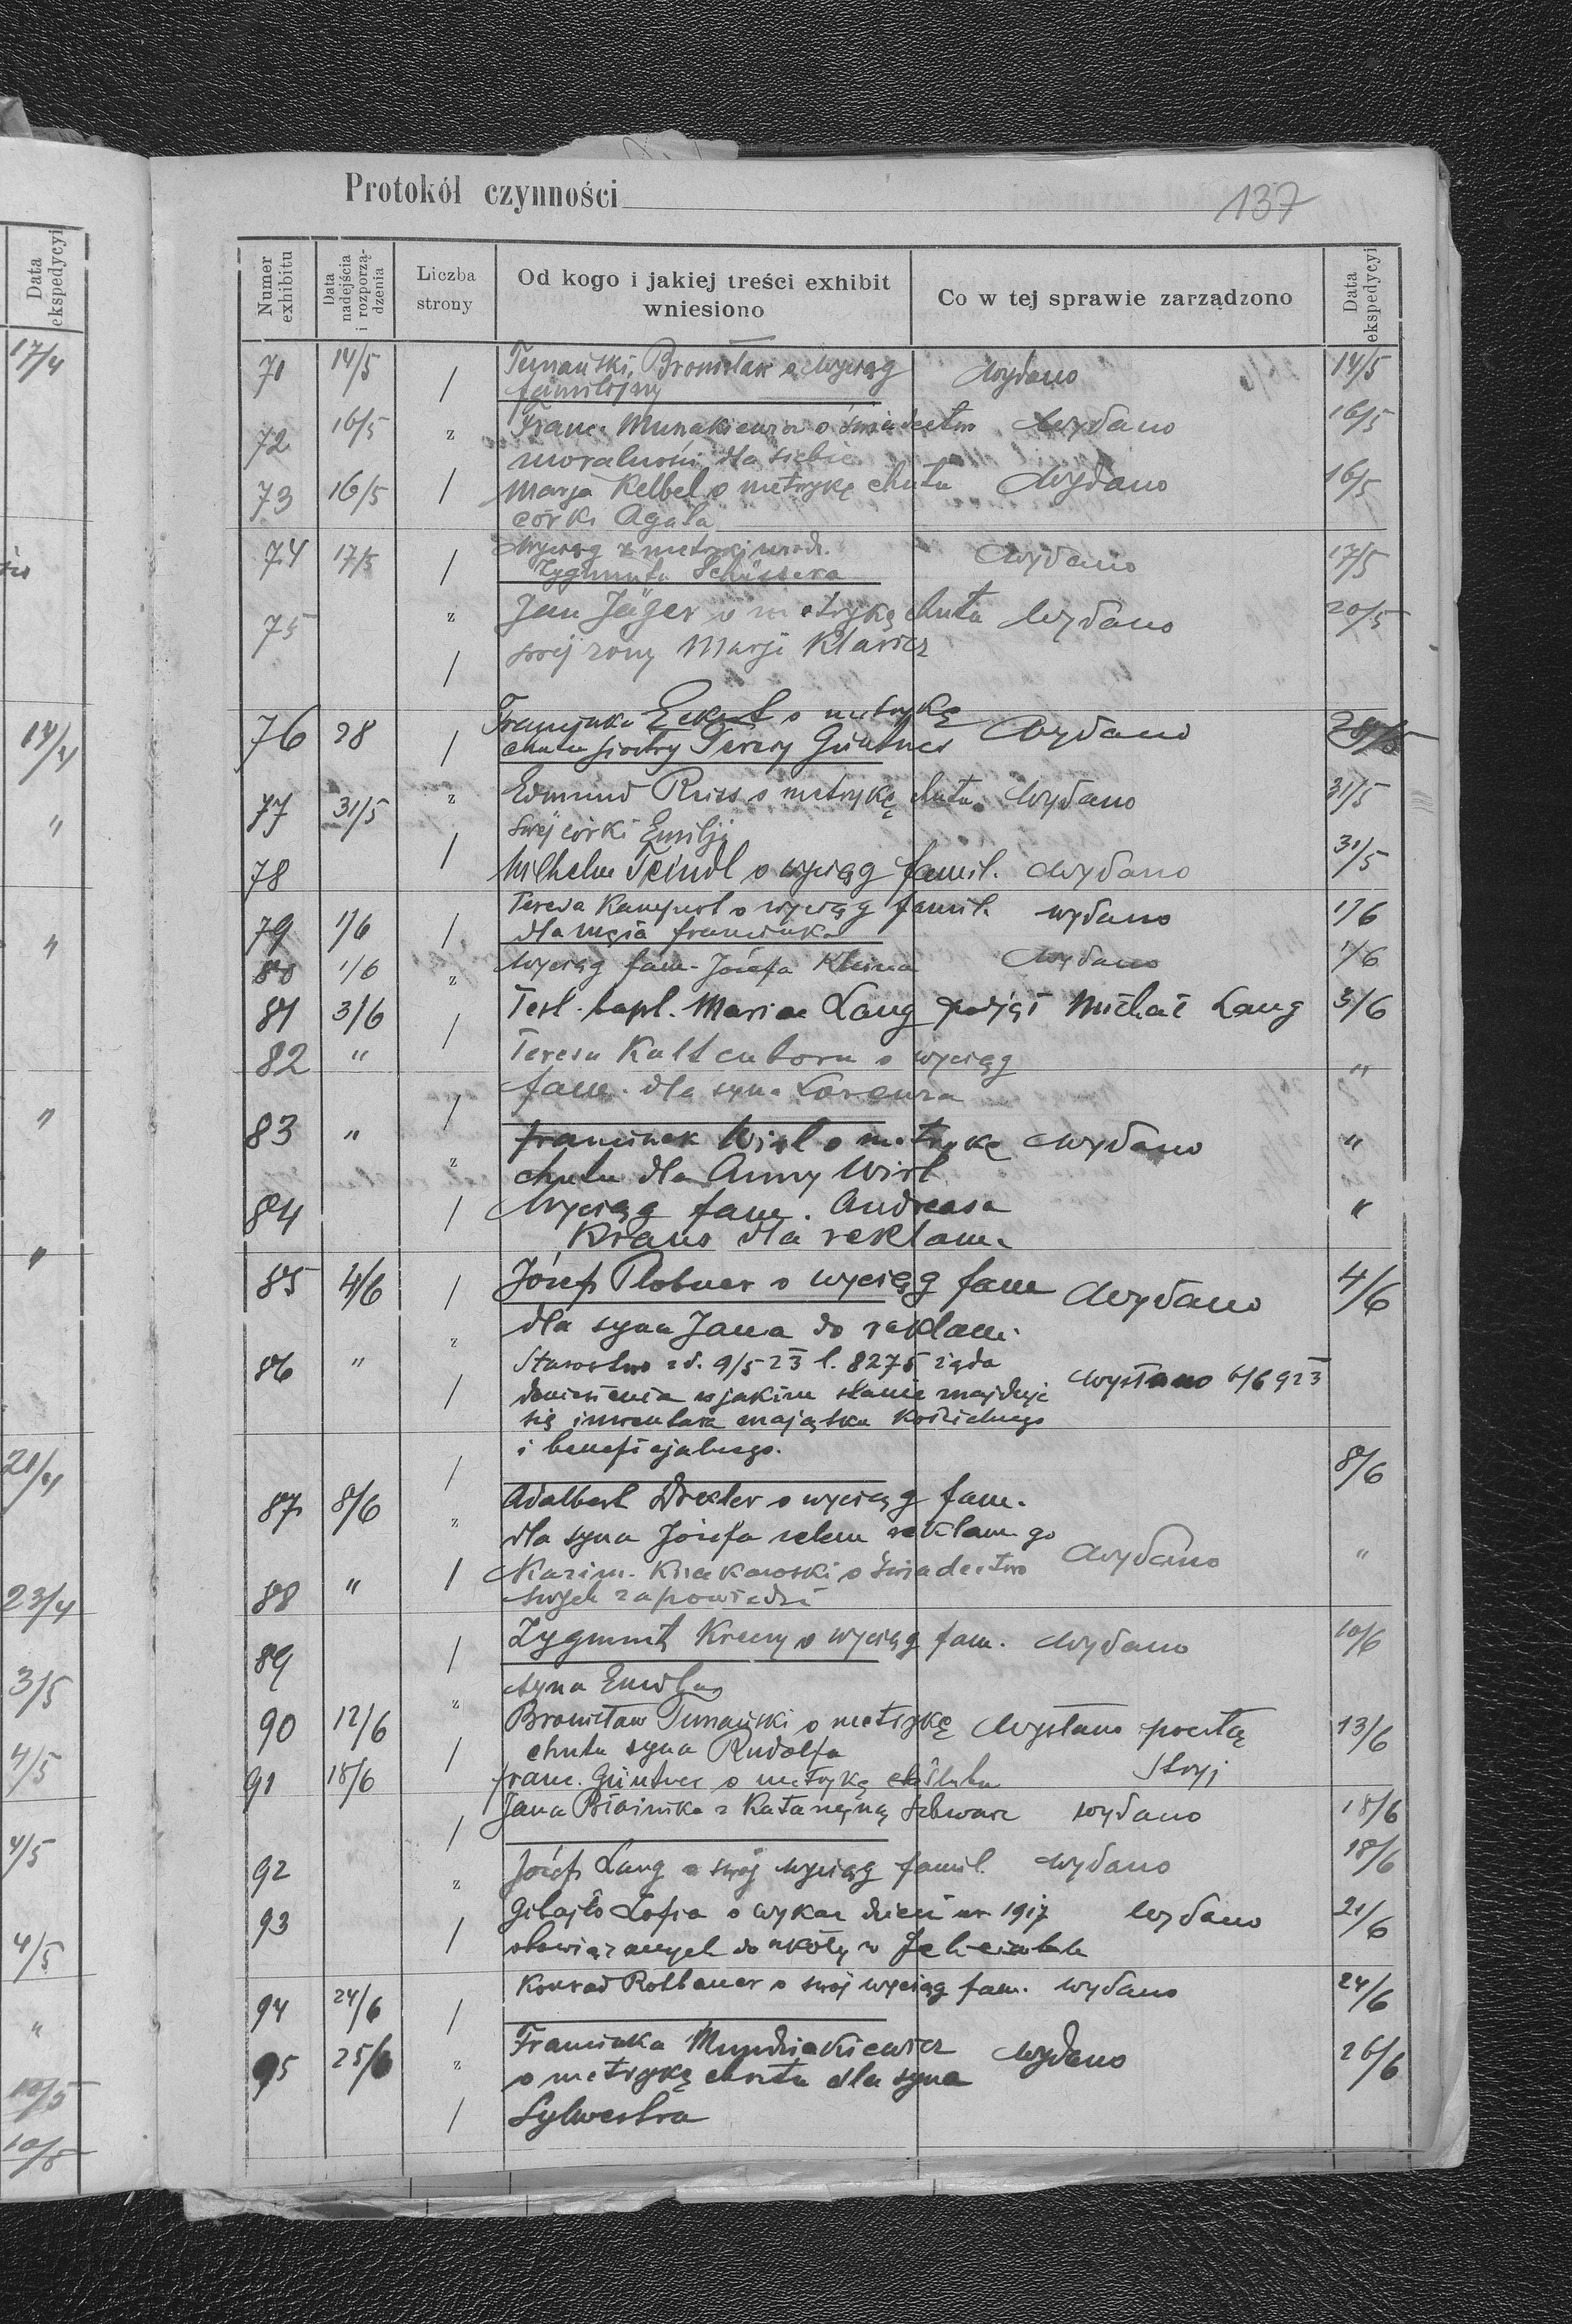 Protokół czynności
137
Numer exhibitu
Data nadejścia i rozporzą-dzenia
Liczba strony
Od kogo i jakiej treści exhibit wniesiono
Co w tej sprawie zarządzono
Data ekspedycyi
71 14/5 Bronisław o wyciąg wydano 14/5
familijny
72 16/5 Franc. o świadectwo wydano 16/5
moralności dla siebie
73 16/5 Marja Kelbel o metrykę chrztu wydano 16/5
córki Agata
74 17/5 Wyciąg z metryki urodz. wydano 17/5
Zygmunta
75 Jan Jäger o metrykę chrztu wydano 20/5
swej żony Marji
76 28 Eckert o metrykę wydano
chrztu siostry Teresy Güntner
77 31/5 Edmund o metrykę chrztu wydano 31/5
swej córki Emilji
78 Wilhelm Teindl o wyciąg famil. wydano 31/5
79 1/6 Teresa o wyciąg famil. wydano 1/6
dla męża
80 1/6 Wyciąg fam. Józefa Kleina wydano 1/6
81 3/6 Test. bapt. Mariae Lang podjął Michał Lang 3/6
82 " Teresa Kaltenborn o wyciąg "
fam. dla syna Lorenza
83 " Franciszek Wirl o metrykę wydano "
chrztu dla Anny Wirl
84 Wyciąg fam. Andreasa "
Kraus dla reklam.
85 4/6 Józef Plobner o wyciąg fam wydano 4/6
dla syna Jana do reklam.
86 " Starostwo z d. 9/5 23 l. 8275 żąda wysłano 6/6 923
doniesienia w jakim stanie znajduje
się inwentarz majątku kościelnego
i beneficjalnego.
87 8/6 Adalbert Drexler o wyciąg fam. 8/6
dla syna Józefa celem reklam. go
88 " Kazim. Krakowski o świadectwo wydano "
swych zapowiedzi
89 Zygmunt o wyciąg fam. wydano 10/6
syna
90 12/6 Bronisław o metrykę wysłano pocztą 13/6
chrztu syna Rudolfa Stryj
91 18/6 Franc. Güntner o metrykę ślubu
Jana z Katarzyną Schwarz wydano 18/6
92 Józef Lang o swój wyciąg famil. wydano 18/6
93 Zofia o wykaz dzieci ur. 1917 wydano 21/6
obowiązanych do szkoły w
94 24/6 Konrad Rotbauer o swój wyciąg fam. wydano 24/6
95 25/6 o metrykę chrztu dla syna wydano 26/6
Sylwestra
Data ekspedycyi
17/4
14/4
"
"
"
"
21/4
23/4
3/5
4/5
4/5
4/5
"
10/5
10/5